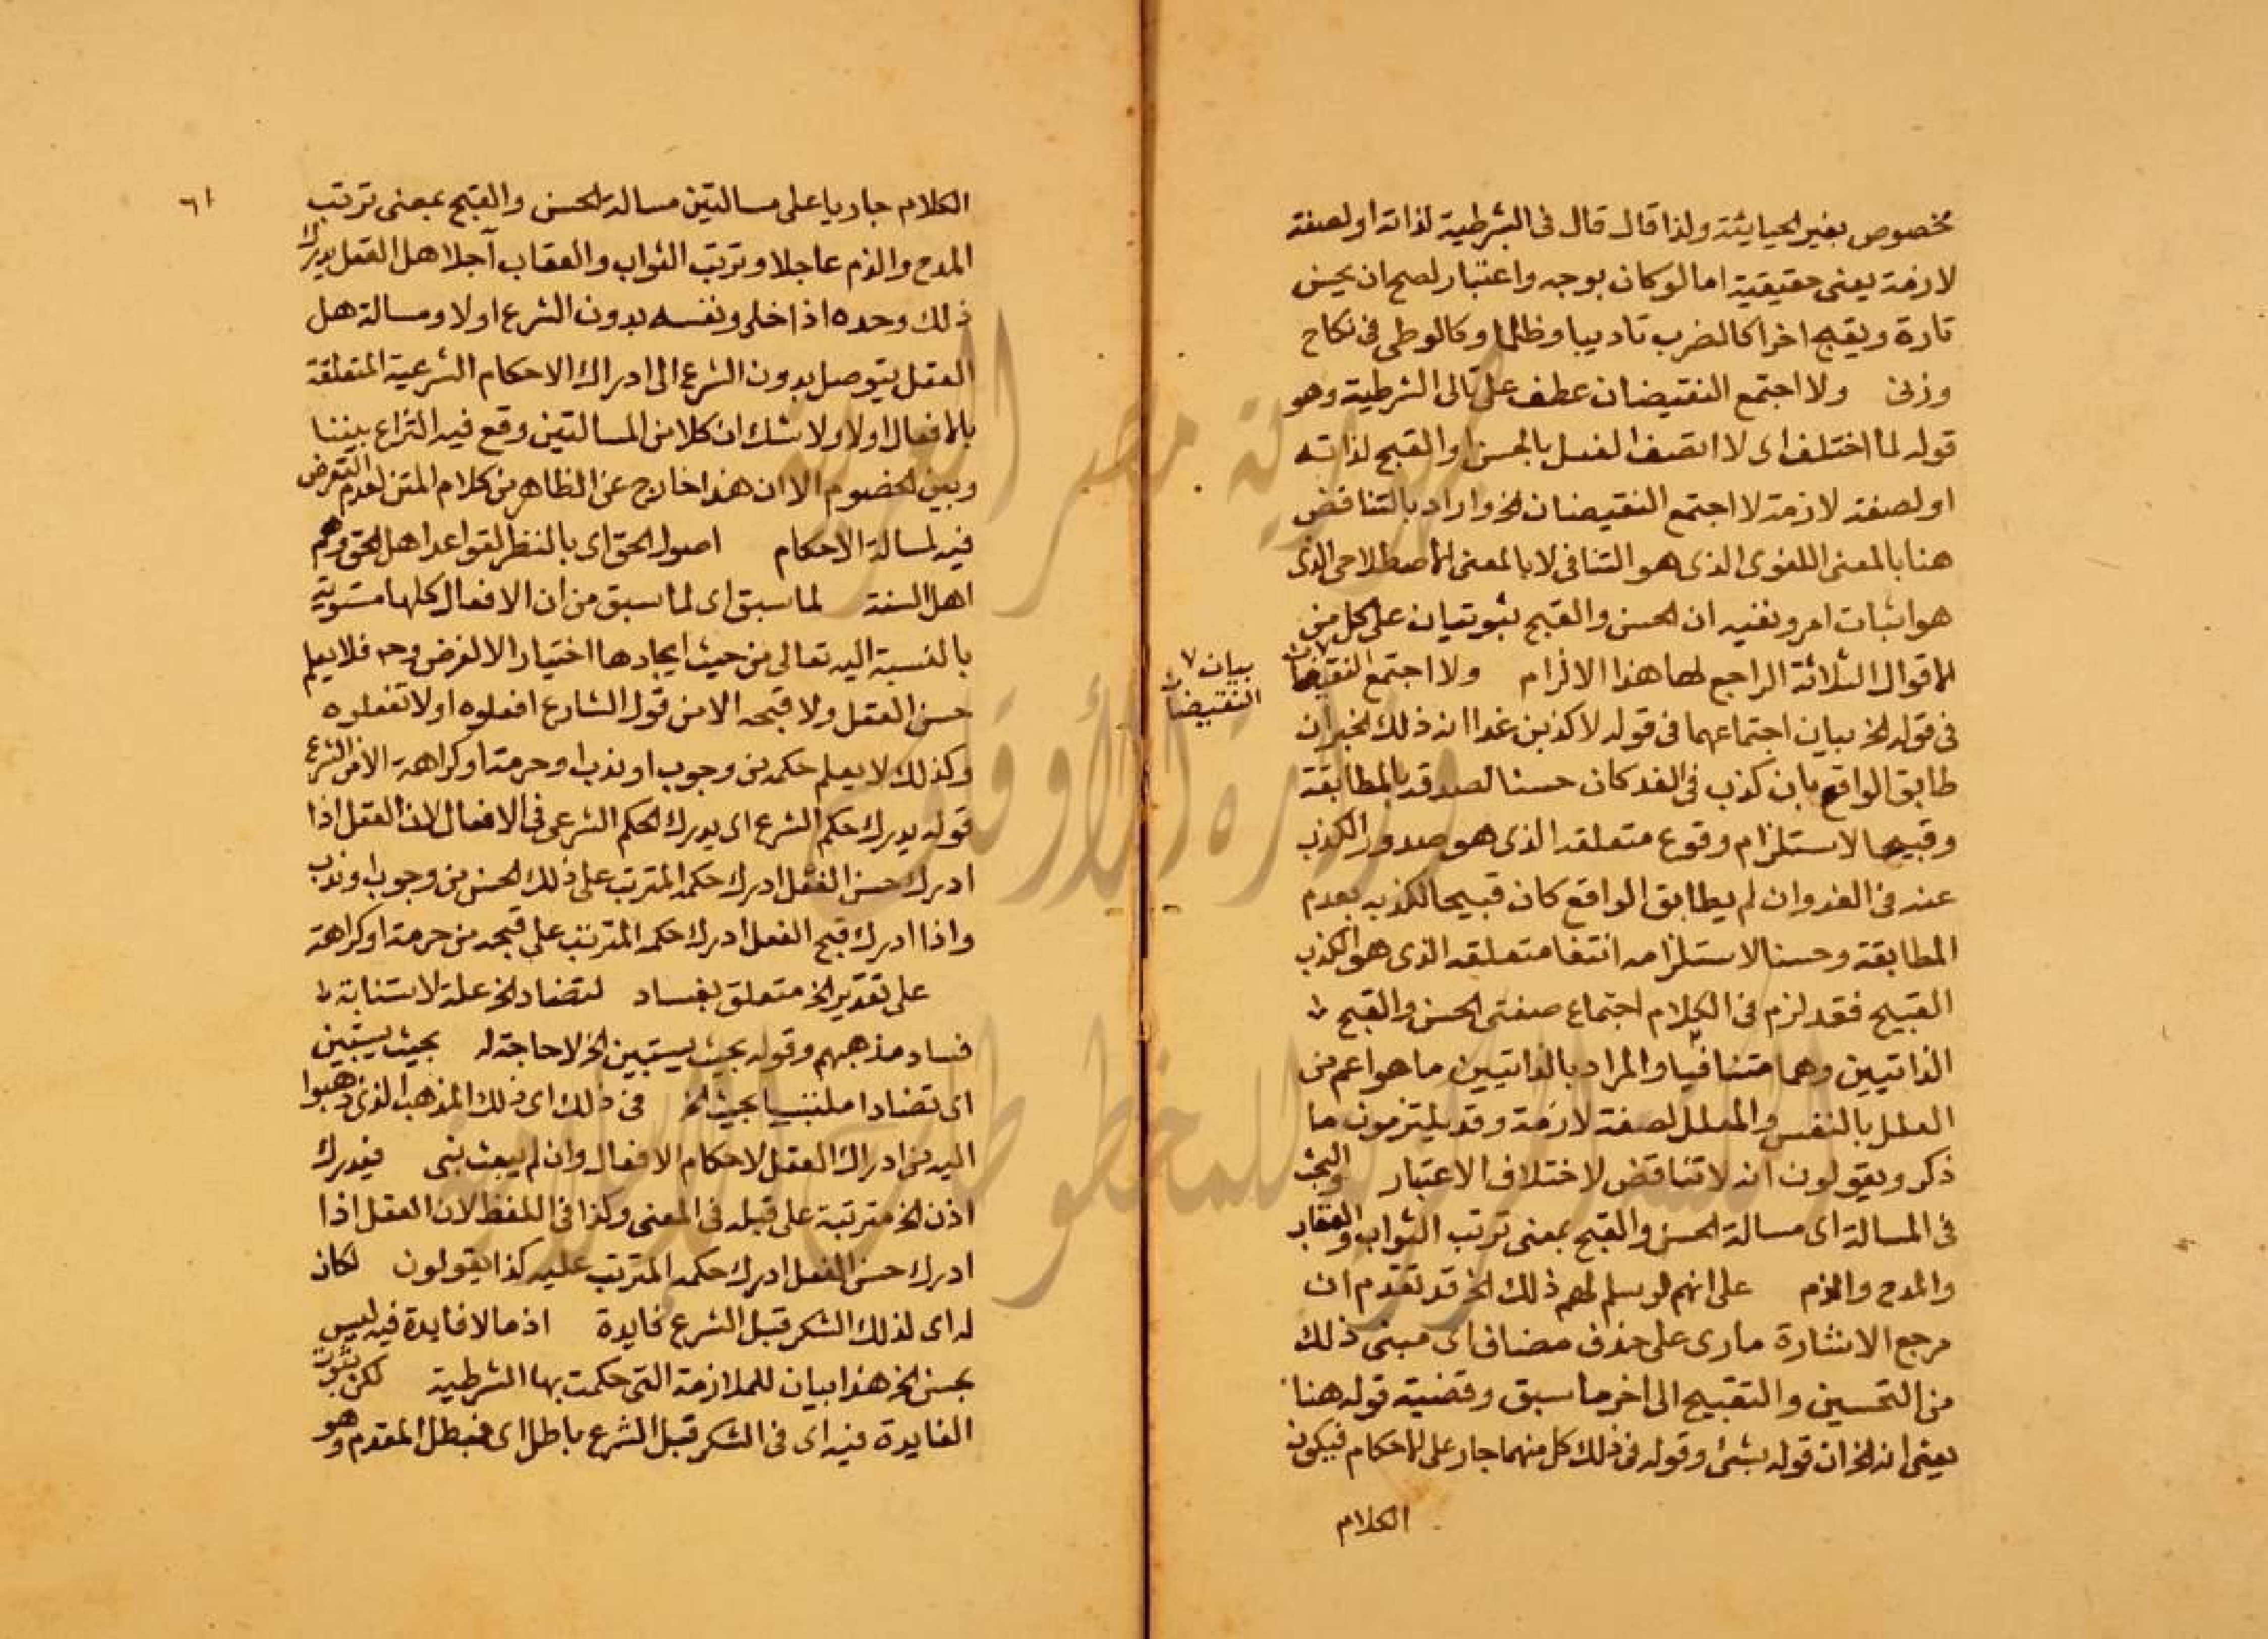 مخصوص بغير الجبايئة ولذا قال قال فى الشرطية لذاته او لصفة
لازمة يعنى حقيقية اما لو كان بوجه واعتبار لصح ان يحسن
تارة ويقبح اخرا كالضرب تاديبا وظلما وكالوطى فى نكاح
وزنى ولا اجتمع النقيضان عطف على تالى الشرطية وهو
قوله لما اختلف اى لا اتصف الفعل بالحسن او القبح لذاته
او لصفة لازمة لا اجتمع النقيضان الخ واراد بالتناقض
هنا بالمعنى اللغوى الذى هو التنافى لا بالمعنى الاصطلاحى الذى
هو اثبات امر ونفيه ان الحسن والقبح ثبوتيان على كل من
الاقوال الثلاثة الراجع لها هذا الالزام ولا اجتمع النقيضان
فى قوله الخ بيان اجتماعهما فى قوله لاكذبن غدا انه ذلك الخبر ان
طابق الواقع بان كذب فى الغد كان حسنا لصدقه بالمطابقة
وقبيحا لاستلزام وقوع متعلقه الذى هو صدور الكذب
عنه فى الغد وان لم يطابق الواقع كان قبيحا لكذبه بعدم
المطابقة وحسنا لاستلزامه انتفا متعلقه الذى هو الكذب
القبيح فقد لزم فى الكلام اجتماع صفتى الحسن والقبح
الذاتيين وهما متنافيا والمراد بالذاتيين ما هو اعم من
المعلل بالنفس والمعلل لصفة لازمة وقد يلتزمون ما
ذكر ويقولون انه لا تناقض لاختلاف الاعتبار والبحث
فى المسالة اى مسالة الحسن والقبح بمعنى ترتب الثواب والعقاب
والمدح والذم على انهم لو سلم لهم ذلك الخ قد تقدم ان
مرجع الاشارة مارى على حذف مضاف اى مبنى ذلك
من التحسين والتقبيح الى اخر ما سبق وقضية قوله هنا
يعنى انه الخ ان قوله بشئ وقوله فى ذلك كل منهما جار على الاحكام فيكون
الكلام
بيان
النقيضان
٦١
الكلام جاريا على مسالتين مسالة الحسن والقبح بمعنى ترتب
المدح والذم عاجلا وترتب الثواب والعقاب آجلا هل العقل يدرك
ذلك وحده اذا خلى ونفسه بدون الشرع اولا ومسالة هل
العقل يتوصل بدون الشرع الى ادراك الاحكام الشرعية المتعلقة
بالافعال اولا ولا شك ان كلا من المسالتين وقع فيه النزاع بيننا
وبين الخصوم الا ان هذا خارج عن الظاهر من كلام المتن لعدم التعرض
فيه لمسالة الاحكام اصول الحق اى بالنظر لقواعد اهل الحق وهم
اهل السنة لما سبق اى لما سبق من ان الافعال كلها مستوية
بالنسبة اليه تعالى من حيث ايجادها اختيارا لا لغرض وح فلا يعلم
حسن العقل ولا قبحه الا من قول الشارع افعلوه اولا تفعلوه
وكذلك لا يعلم حكمه من وجوب او ندب او حرمة او كراهة الا من الشرع
قوله يدرك حكم الشرع اى يدرك الحكم الشرعى فى الافعال لان العقل اذا
ادرك حسن الفعل ادرك حكمه المترتب على ذلك الحسن من وجوب او ندب
واذا ادرك قبح الفعل ادرك حكمه المترتب على قبحه من حرمة او كراهة
على تقدير الخ متعلق بفساد لتضاد الخ علة لاستنابة
فساد مذهبهم وقوله بحيث يستبين الخ لا حاجة له بحيث يستبين
اى تضادا ملتبسا بحيث الخ فى ذلك اى ذلك المذهب الذى ذهبوا
اليه من ادراك العقل لاحكام الافعال وان لم يبعث نبى فيدرك
اذن الخ مترتبة على قبله فى المعنى وكذا فى اللفظ لان العقل اذا
ادرك حسن الفعل ادرك حكمه المترتب عليه كذا يقولون لكان
له اى لذلك الشكر قبل الشرع فايدة اذ ما لا فايدة فيه ليس
بحسن الخ هذا بيان للملازمة التى حكمت بها الشرطية لكن ثبوت
الفايدة فيه اى فى الشكر قبل الشرع باطل اى فبطل المقدم وهو